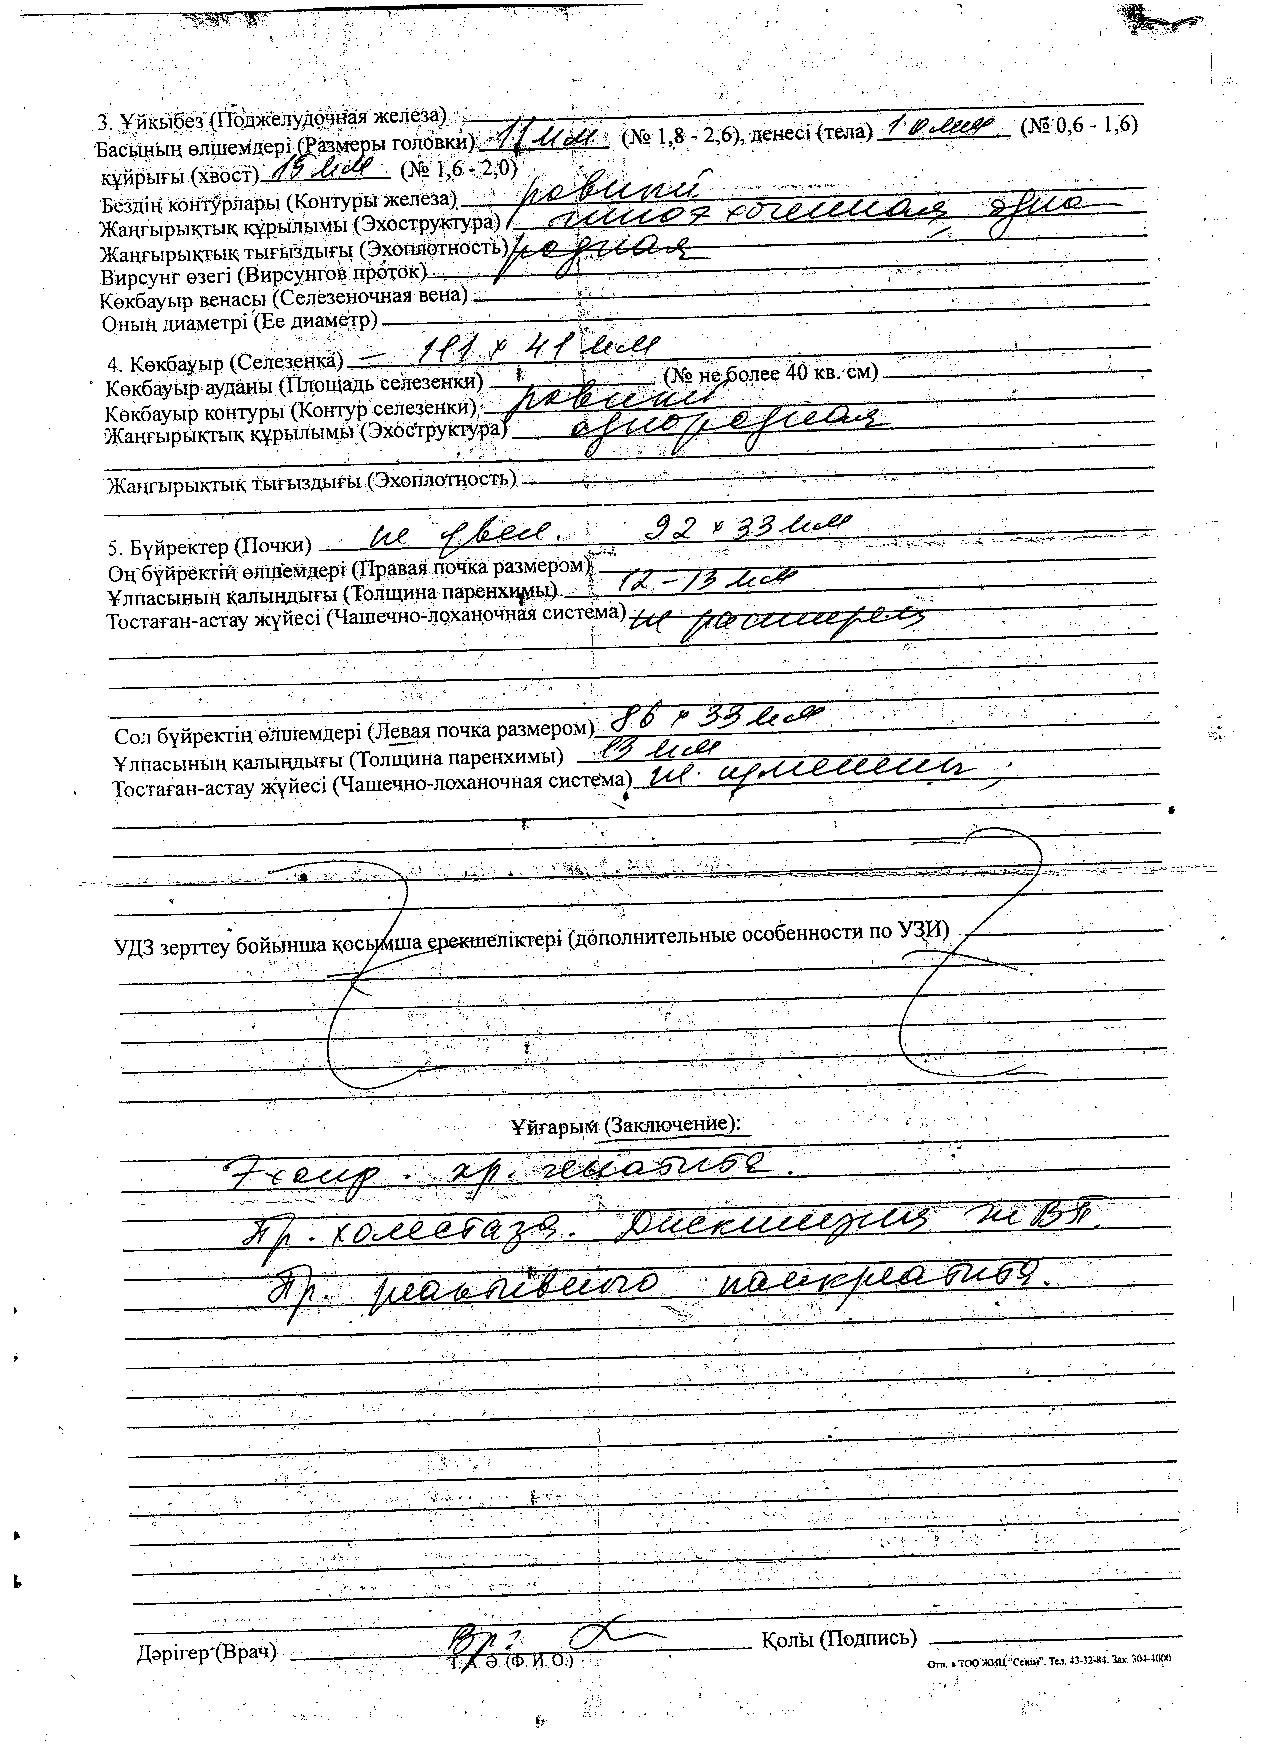 3. Ұйқыбез (Поджелудочная железа)
Басының өлшемдері (Размеры головки) 11 мм (№ 1,8 - 2,6), денесі (тела) 10 мм (№ 0,6 - 1,6)
құйрығы (хвост) 15 мм (№ 1,6 - 2,0)
Бездің контурлары (Контуры железа) ровный
Жаңғырықтық құрылымы (Эхоструктура) одно-
Жаңғырықтық тығыздығы (Эхоплотность) родная
Вирсунг өзегі (Вирсунгов проток)
Көкбауыр венасы (Селезеночная вена)
Оның диаметрі (Ее диаметр)
4. Көкбауыр (Селезенка) – 111 х 41 мм
Көкбауыр ауданы (Площадь селезенки) (№ не более 40 кв. см)
Көкбауыр контуры (Контур селезенки) ровный
Жаңғырықтық құрылымы (Эхоструктура) однородная
Жаңғырықтық тығыздығы (Эхоплотность)
5. Бүйректер (Почки) не увел. 92 х 33 мм
Оң бүйректің өлшемдері (Правая почка размером)
Ұлпасының қалыңдығы (Толщина паренхимы) 12-13 мм
Тостаған-астау жүйесі (Чашечно-лоханочная система) не расширен
Сол бүйректің өлшемдері (Левая почка размером) 86 х 33 мм
Ұлпасының қалыңдығы (Толщина паренхимы) 13 мм
Тостаған-астау жүйесі (Чашечно-лоханочная система) не изменен
УДЗ зерттеу бойынша қосымша ерекшеліктері (дополнительные особенности по УЗИ)
Ұйғарым (Заключение):
Эхопр. хр. гепатита.
Пр. холестаза. Дискинезия ЖВП.
Пр. реактивного панкреатита.
Дәрігер (Врач) Вр: Қолы (Подпись)
Т. А. Ә. (Ф. И. О.)
Отп. в ТОО ЖИЦ "Сенім". Тел. 43-32-84. Зак. 304-4000